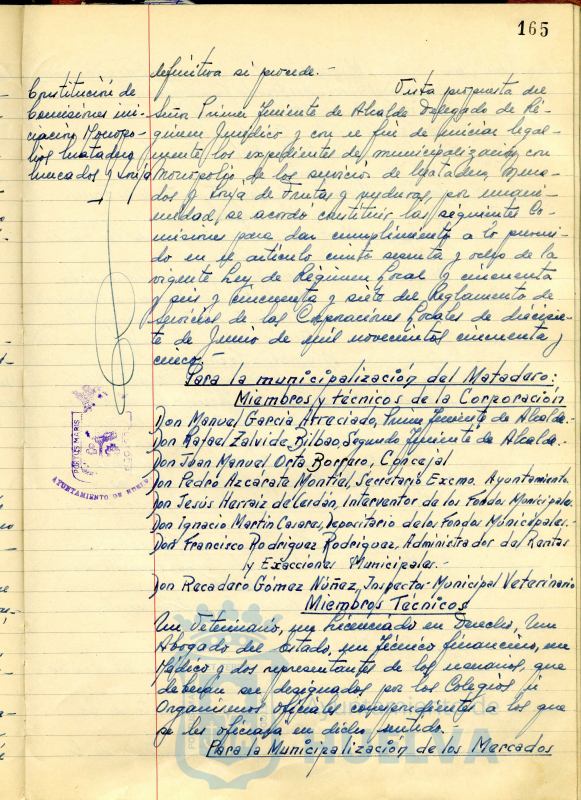 165
definitiva si procede.-
Constitución de
Comisiones ini-
ciación Monopo-
lios Matadero
Mercados y Lonja
Vista propuesta del
Señor Primer Teniente de Alcalde Delegado de Ré-
gimen Jurídico y con el fin de iniciar legal-
mente los expedientes de municipalización con
Monopolio de los servicios de Matadero, Merca-
dos y Lonja de Frutas y verduras, por unani-
midad, se acordó constituir las siguientes Co-
misiones para dar cumplimiento a lo preveni-
do en el artículo ciento sesenta y ocho de la
vigente Ley de Régimen Local y cincuenta
y seis y cincuenta y siete del Reglamento de
Servicios de las Corporaciones Locales de diecisie-
te de Junio de mil novecientos cincuenta y
cinco.-
Para la municipalización del Matadero:
Miembros y técnicos de la Corporación
Don Manuel García Arreciado, Primer Teniente de Alcalde.
Don Rafael Zalvide Bilbao, Segundo Teniente de Alcalde.-
Don Juan Manuel Orta Borrero, Concejal
Don Pedro Azcarate Montiel, Secretario Excmo. Ayuntamiento.
Don Jesús Herraiz de Cerdán, Interventor de los Fondos Municipales.
Don Ignacio Martín Casares, Depositario de los Fondos Municipales.-
Don Francisco Rodríguez Rodríguez, Administrador de Rentas
y Exacciones Municipales.-
Don Recadero Gómez Núñez, Inspector Municipal Veterinario
Miembros Técnicos
Un Veterinario, un Licenciado en Derecho, Un
Abogado del Estado, un Técnico financiero, un
Médico y dos representantes de los usuarios, que
deberán ser designados por los Colegios u
Organismos oficiales correspondientes a los que
se les oficiará en dicho sentido.-
Para la Municipalización de los Mercados
PORTUS MARIS
AYUNTAMIENTO DE HUELVA
HUELVA